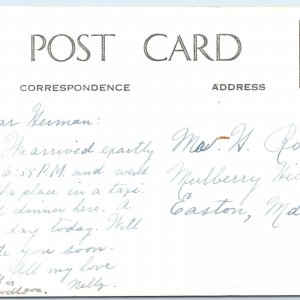 POST CARD
CORRESPONDENCE ADDRESS
ar Herman:
We arrived exactly
6:55 P.M. and went
he place in a taxi.
d dinner here. A
day today. Will
te you soon.
All my love
Nelly.
H.
Mulberry Hil
Easton, Md